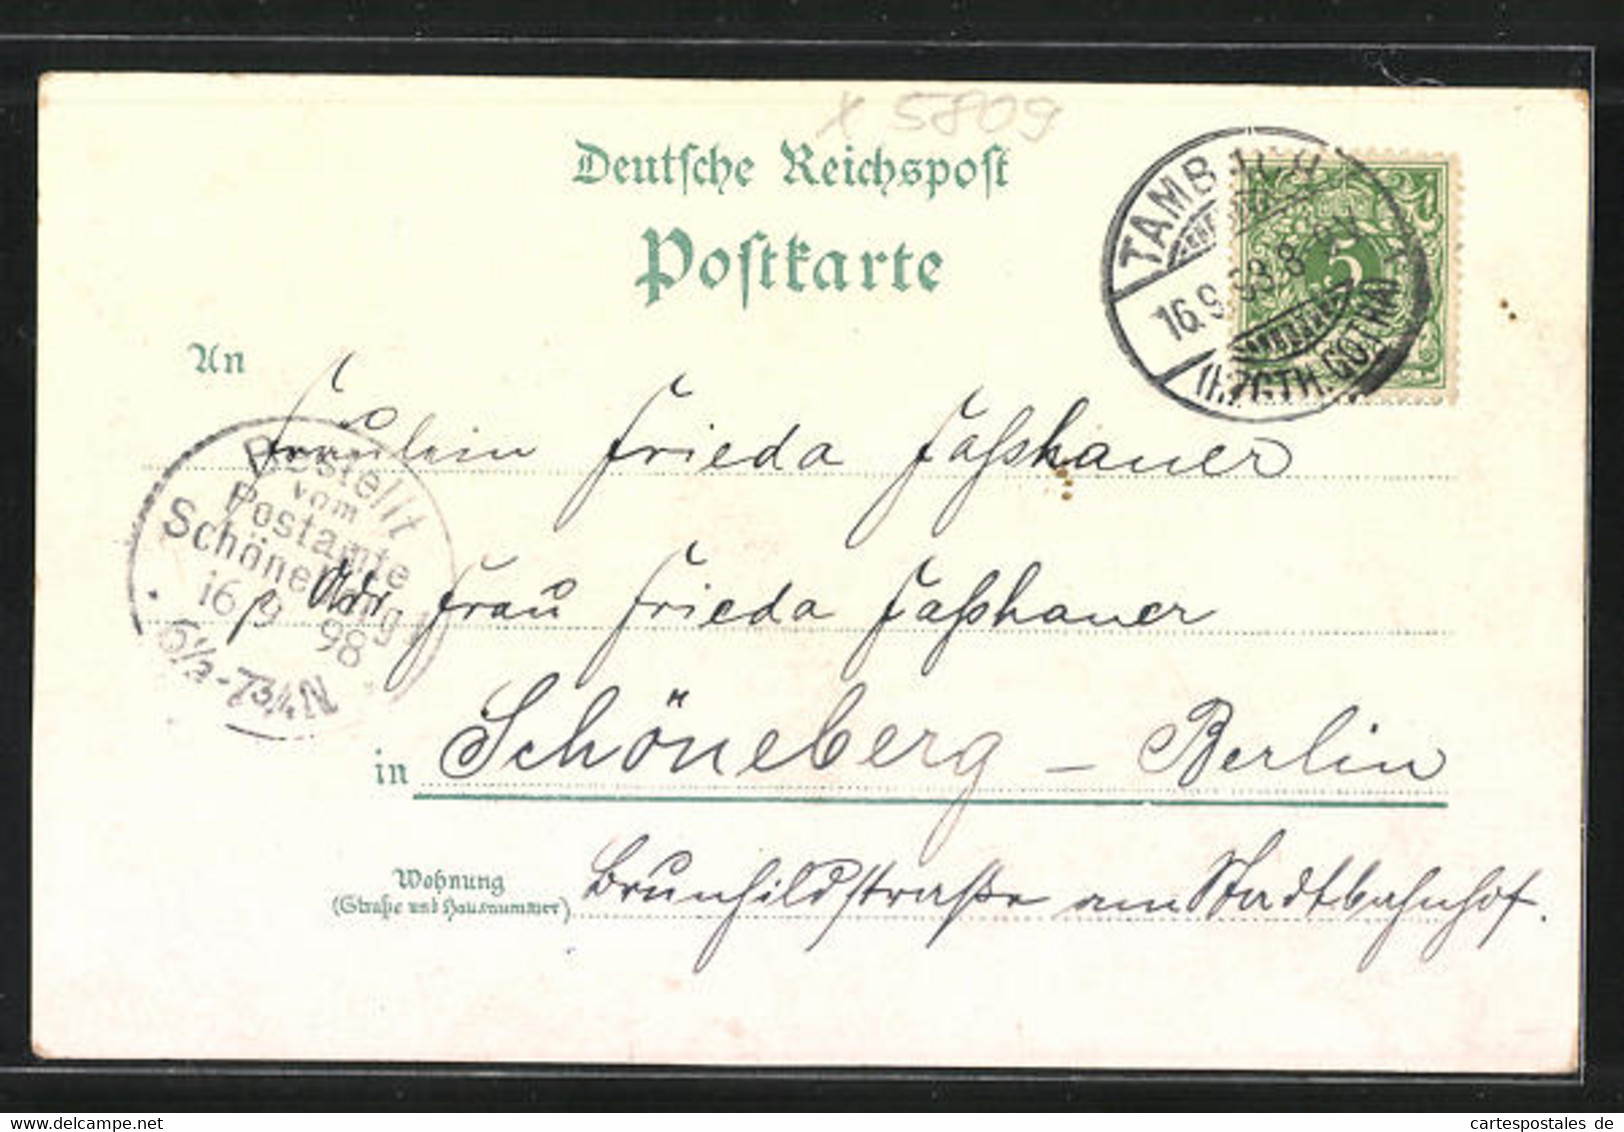 x 5809
Deutsche Reichspost
Postkarte
TAMBACH
16.9.98.8-9V
(HZGTH. GOTHA)
5
An
Fräulein Frieda Faßhauer
Bestellt
vom
Postamte
Schöneberg
16 9 98
6½-7¾N
p. Adr. Frau Frieda Faßhauer
in Schöneberg – Berlin
Wohnung
(Straße und Hausnummer)
Brunhildstraße am Stadtbahnhof.
cartespostales de